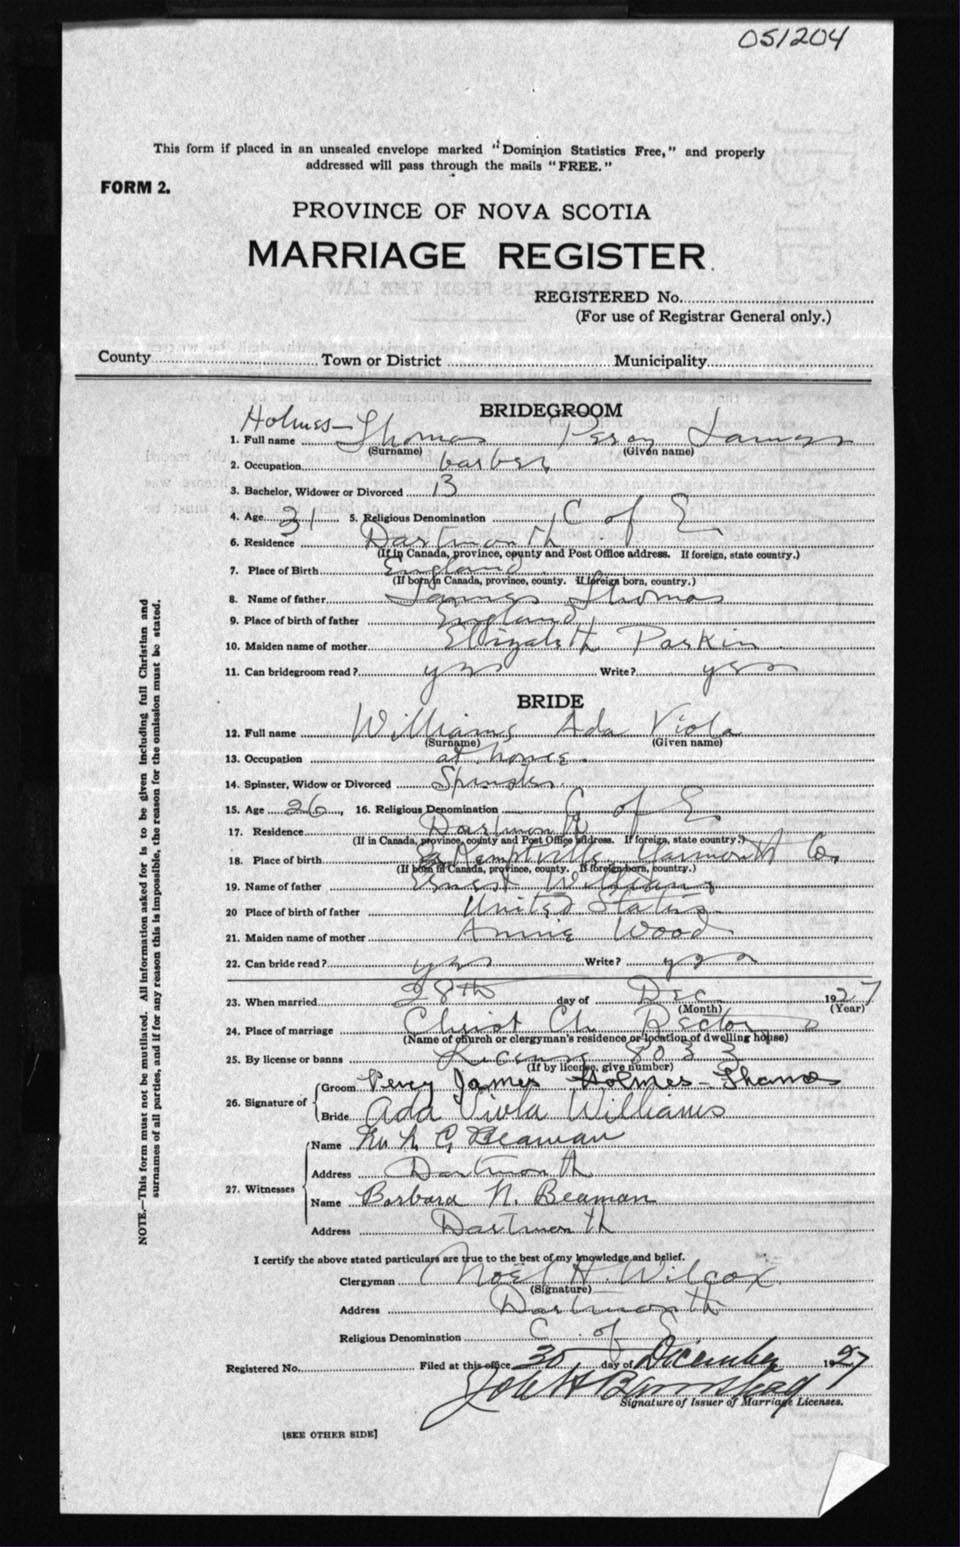 051204
This form if placed in an unsealed envelope marked "Dominion Statistics Free," and properly
addressed will pass through the mails "FREE."
FORM 2.
PROVINCE OF NOVA SCOTIA
MARRIAGE REGISTER
REGISTERED No.
(For use of Registrar General only.)
County Town or District Municipality
BRIDEGROOM
1. Full name Holmes-Thomas Percy James
(Surname) (Given name)
2. Occupation barber
3. Bachelor, Widower or Divorced B
4. Age 31 5. Religious Denomination C of E
6. Residence Dartmouth
(If in Canada, province, county and Post Office address. If foreign, state country.)
7. Place of Birth England
(If born in Canada, province, county. If foreign born, country.)
8. Name of father James Thomas
9. Place of birth of father England
10. Maiden name of mother Elizabeth Parkin
11. Can bridegroom read? yes Write? yes
BRIDE
12. Full name Williams Ada Viola
(Surname) (Given name)
13. Occupation at home.
14. Spinster, Widow or Divorced Spinster.
15. Age 26, 16. Religious Denomination C of E
17. Residence Dartmouth
(If in Canada, province, county and Post Office address. If foreign, state country.)
18. Place of birth Kemptville Yarmouth Co.
(If born in Canada, province, county. If foreign born, country.)
19. Name of father Ernest Williams
20 Place of birth of father United States
21. Maiden name of mother Annie Wood
22. Can bride read? yes Write? yes
23. When married 28th day of Dec 1927
(Month) (Year)
24. Place of marriage Christ Ch. Rectory
(Name of church or clergyman's residence or location of dwelling house)
25. By license or banns License 8033
(If by license, give number)
26. Signature of Groom Percy James Holmes-Thomas
Bride Ada Viola Williams
27. Witnesses
Name Beaman
Address Dartmouth
Name Barbara N. Beaman
Address Dartmouth
I certify the above stated particulars are true to the best of my knowledge and belief.
Clergyman Noel H. Wilcox
(Signature)
Address Dartmouth
Religious Denomination C. of E
Registered No. Filed at this office 30 day of December 1927
Signature of Issuer of Marriage Licenses.
[SEE OTHER SIDE]
NOTE.—This form must not be mutilated. All information asked for is to be given including full Christian and
surnames of all parties, and if for any reason this is impossible, the reason for the omission must be stated.